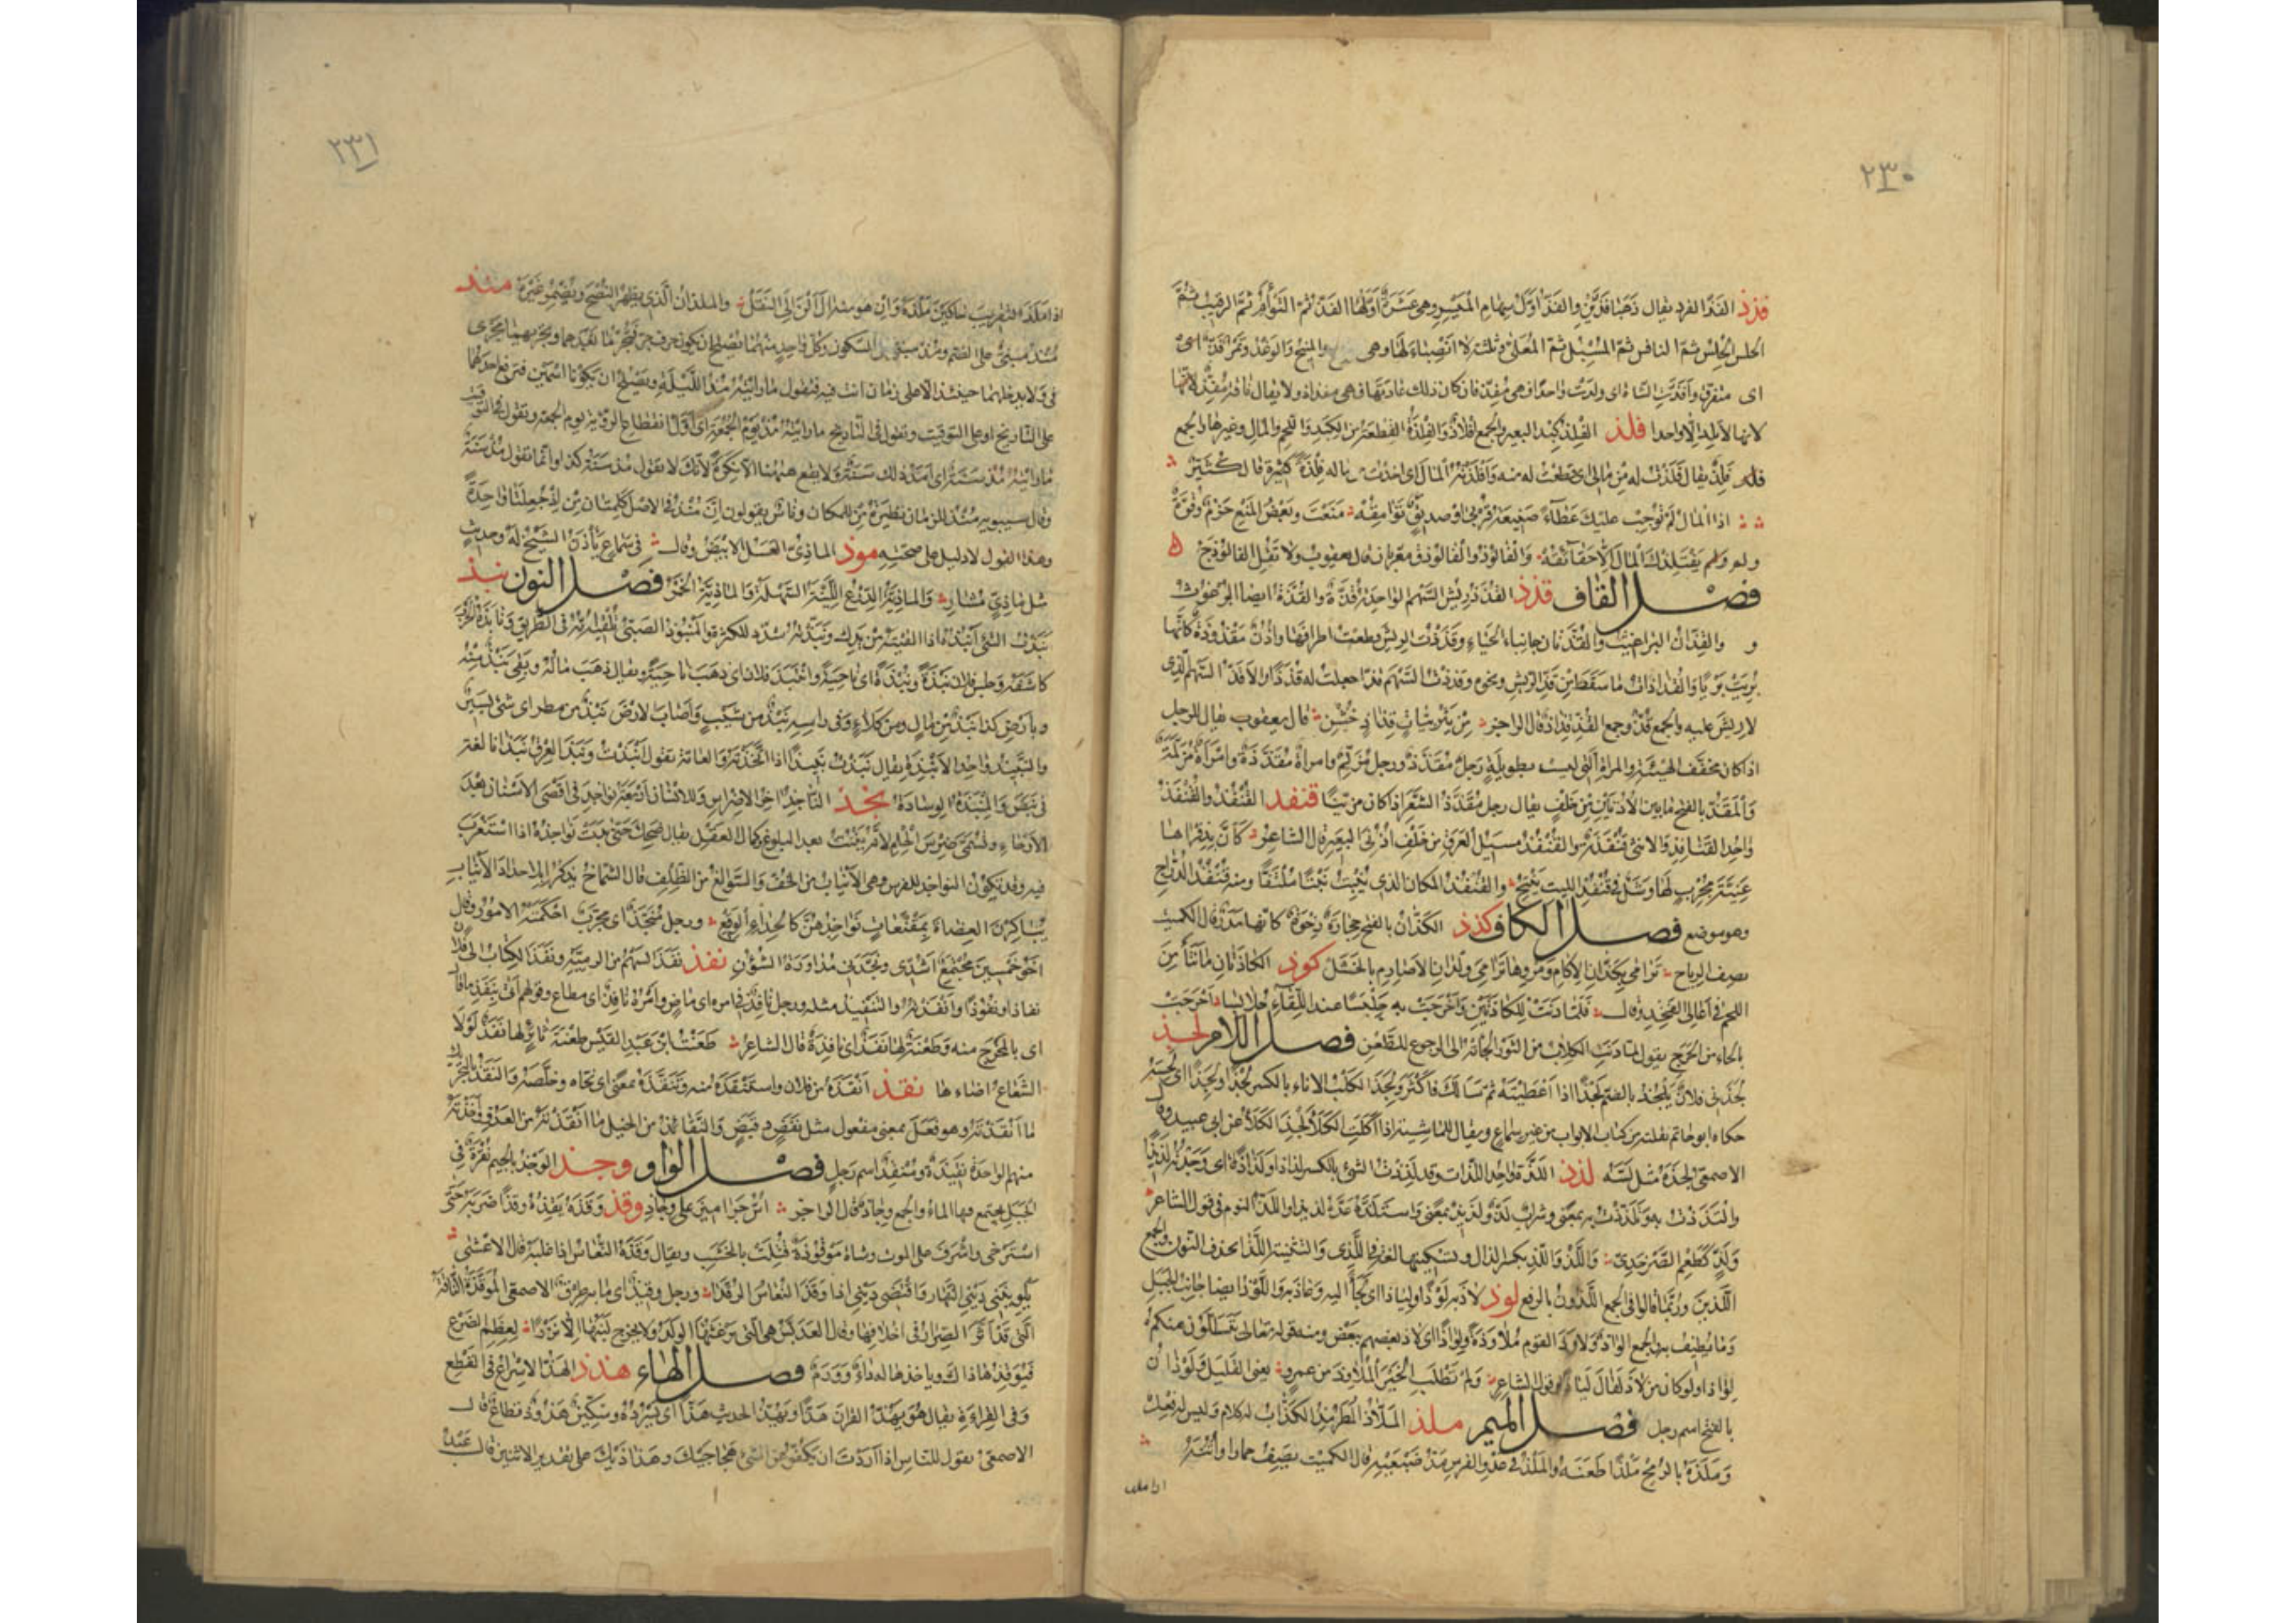 ٢٣٠
فذذ الفذ الفرد يقال ذهبا فذين والفذ اول سهام الميسر وهى عشرة اولها الفذ ثم التوأم ثم الرقيب ثم
الحلس ثم النافس ثم المسبل ثم المعلى وثلثة لا انصباء لها وهى والمنيح والوغد وتمر فذ اى
اى متفرق وأفذت الشاة اى ولدت واحدا فهى مفذ فان كان ذلك عادتها فهى مفذاذ ولا يقال ناقة مفذ لانها
لانها لا تلد الا واحدا فلذ الفلذ كبد البعير والجمع افلاذ والفلذة القطعة من الكبد واللحم والمال وغيرها والجمع
فلذ يقال فلذت له من مالى اى قطعت له منه وافتلذته المال اى اخذت من ماله فلذة كثيرة قال كثير
اذا المال لم توجب عليك عطاءه صنيعة قربى او صديق توامقه منعت وبعض المنع حزم وقوة
ولم يفتلذك المال الا حقائقه والفالوذ والفالوذق معربان قال يعقوب ولا تقل الفالوذج
فصل القاف قذذ القذذ ريش السهم الواحدة قذة والقذة ايضا البرغوث
والقذان البراغيث والقذتان جانبا الحياء وقذذت الريش قطعت اطرافها واذن مقذوذة كانها
بريت بريا والقذاذات ما سقط من قذ الريش ونحوه وقذذت السهم قذا جعلت له قذذا والاقذ السهم الذى
لا ريش عليه والجمع قذ وجمع القذ قذاذ قال الراجز من يثربيات قذاذ خشن قال يعقوب يقال للرجل
اذا كان مخفف الهيئة والمراة التى ليست بطويلة رجل مقذذ ورجل مزلم وامراة مقذذة وامراة مزلمة
والمقذ بالفتح ما بين الاذنين من خلف يقال رجل مقذذ الشعر اذا كان مزينا قنفذ القنفذ والقنفذ
واحد القنافذ والانثى قنفذة والقنفذ مسيل العرق من خلف اذنى البعير قال الشاعر كان بذفراها
عنية مجرب لها وشل فى قنفذ الليت ينتح والقنفذ المكان الذى ينبت نبتا ملتفا ومنه قنفذ الدراج
وهو موضع فصل الكاف كذذ الكذان بالفتح حجارة رخوة كانها مدر قال الكميت
يصف الرياح ترامى بكذان الاكام ومروها ترامى ولدان الاصارم بالخشل كوذ الكاذتان ما نتأ من
اللحم فى اعالى الفخذ وقال فلما دنت للكاذتين واحرجت به حلبسا عند اللقاء حلابسا احرجت
بالحاء من الحرج يقول لما دنت الكلاب من الثور الجاته الى الرجوع للطعن فصل اللام لجذ
لجذنى فلان يلجذ بالضم لجذا اذا اعطيته ثم سالك فاكثر ولجذ الكلب الاناء بالكسر لجذا ولجذا اى لحسه
حكاه ابو حاتم نقلته من كتاب الابواب من غير سماع ويقال للماشية اذا اكلت الكلأ لجذ الكلأ عن ابى عبيد وقال
الاصمعى لجذه مثل لسه لذذ اللذة واحد اللذات وقد لذذت الشئ بالكسر لذاذا ولذاذة اى وجدته لذيذا
والتذذت به وتلذذت به بمعنى وشراب لذ ولذيذ بمعنى واستلذه عده لذيذا واللذ النوم فى قول الشاعر
ولذ كطعم الصرخدى واللذ واللذ بكسر الذال وتسكينها لغة فى الذى والتثنية اللذا بحذف النون والجمع
اللذين وربما قالوا فى الجمع اللذون بالرفع لوذ لاذ به لوذا ولياذا اى لجأ اليه وعاذ به واللوذ ايضا جانب الجبل
وما يطيف به والجمع الواذ ولاوذ القوم ملاوذة ولواذا اى لاذ بعضهم ببعض ومنه قوله تعالى يتسللون منكم
لواذا ولو كان من لاذ لقال لياذا وقول الشاعر ولم تطلب الخير الملاوذ من عمرو يعنى القليل ولوذان
بالفتح اسم رجل فصل الميم ملذ الملاذ المطرمذ الكذاب له كلام وليس له فعل
وملذه بالرمح ملذا طعنه والملذ فى عدو الفرس مد ضبعيه قال الكميت يصف حمارا واتنه
اذا ملذ
٢٣١
اذا ملذ التقريب حاكين ملذه وان هو منه آل الن الى النقل والملذان الذى يظهر النصح ويضمر غيره منذ
منذ مبنى على الضم ومذ مبنى على السكون وكل واحد منهما يصلح ان يكون حرف جر فتجر ما بعدهما وتجريهما مجرى
فى ولا تدخلهما حينئذ الا على زمان انت فيه فتقول ما رايته منذ الليلة ويصلح ان يكونا اسمين فترفع ما بعدهما
على التاريخ او على التوقيت وتقول فى التاريخ ما رايته مذ يوم الجمعة اى اول انقطاع الرؤية يوم الجمعة وتقول فى التوقيت
ما رايته مذ سنة اى امد ذلك سنة ولا يقع ههنا الا نكرة لانك لا تقول مذ سنة كذا وانما تقول مذ سنة
وقال سيبويه منذ للزمان نظيره من للمكان وناس يقولون ان منذ فى الاصل كلمتان من اذ جعلتا واحدة
وهذا القول لا دليل على صحته موذ الماذى العسل الابيض وقال فى سماع يأذن الشيخ له وحديث
مثل ماذى مشار والماذية الدرع اللينة السهلة والماذية الخمر فصل النون نبذ
نبذت الشئ انبذه اذا القيته من يدك ونبذته شدد للكثرة والمنبوذ الصبى تلقيه امه فى الطريق ونابذه الحرب
كاشفه وجلس فلان نبذة ونبذة اى ناحية وانتبذ فلان اى ذهب ناحية ويقال ذهب ماله وبقى نبذ منه
وبارض كذا نبذ من مال ومن كلاء وفى راسه نبذ من شيب واصاب الارض نبذ من مطر اى شئ يسير
والنبيذ واحد الانبذة يقال نبذت نبيذا اذا اتخذته والعامة تقول انبذت ونبذ العرق نبذانا لغة
فى نبض والمنبذة الوسادة نجذ الناجذ اخر الاضراس وللانسان اربعة نواجذ فى اقصى الاسنان بعد
الارحاء وتسمى ضرس الحلم لانه ينبت بعد البلوغ وكمال العقل يقال ضحك حتى بدت نواجذه اذا استغرب
فيه وقد تكون النواجذ للفرس وهى الانياب من الخف والسوالغ من الظلف قال الشماخ يذكر ابلا حداد الانياب
يباكرن العضاه بمقنعات نواجذهن كالحداء الوقيع ورجل منجذ اى مجرب احكمته الامور وقال
اخو خمسين مجتمع اشدى ونجذنى مداورة الشؤن نفذ نفذ السهم من الرمية ونفذ الكتاب الى فلان
نفاذا ونفوذا وانفذته والتنفيذ مثله ورجل نافذ فى امره اى ماض وامره نافذ اى مطاع وقولهم اتى بنفذ ما قال
اى بالمخرج منه وطعنة لها نفذ اى نافذة قال الشاعر طعنت ابن عبد القيس طعنة ثائر لها نفذ لولا
الشعاع اضاءها نقذ انقذه من فلان واستنقذه منه وتنقذه بمعنى اى نجاه وخلصه والنقذ بالتحريك
ما انقذته وهو فعل بمعنى مفعول مثل نفض وقبض والنقائذ من الخيل ما انقذته من العدو واخذته
منهم الواحدة نقيذة ومنقذ اسم رجل فصل الواو وجذ الوجذ بالجيم نقرة فى
الجبل يجتمع فيها الماء والجمع وجاذ قال الراجز اس جراميز على وجاذ وقذ وقذه يقذه وقذا ضربه حتى
استرخى واشرف على الموت وشاة موقوذة قتلت بالخشب ويقال وقذه النعاس اذا غلبه قال الاعشى
يلويننى دينى النهار واقتضى دينى اذا وقذ النعاس الرقدا ورجل وقيذ اى ما به طرق الاصمعى الموقذة الناقة
التى قد اثر الصرار فى اخلافها وقال العدبس هى التى يرغثها الولد ولا يخرج لبنها الا نزرا لعظم الضرع
فيوقذها ذلك وياخذها له داء وورم فصل الهاء هذذ الهذ الاسراع فى القطع
وفى القراءة يقال هو يهذ القران هذا ويهذ الحديث هذا اى يسرده وسكين هذوذ قطاع قال
الاصمعى تقول للناس اذا اردت ان يكفوا عن الشئ هجاجيك وهذاذيك على تقدير الاثنين قال عبد